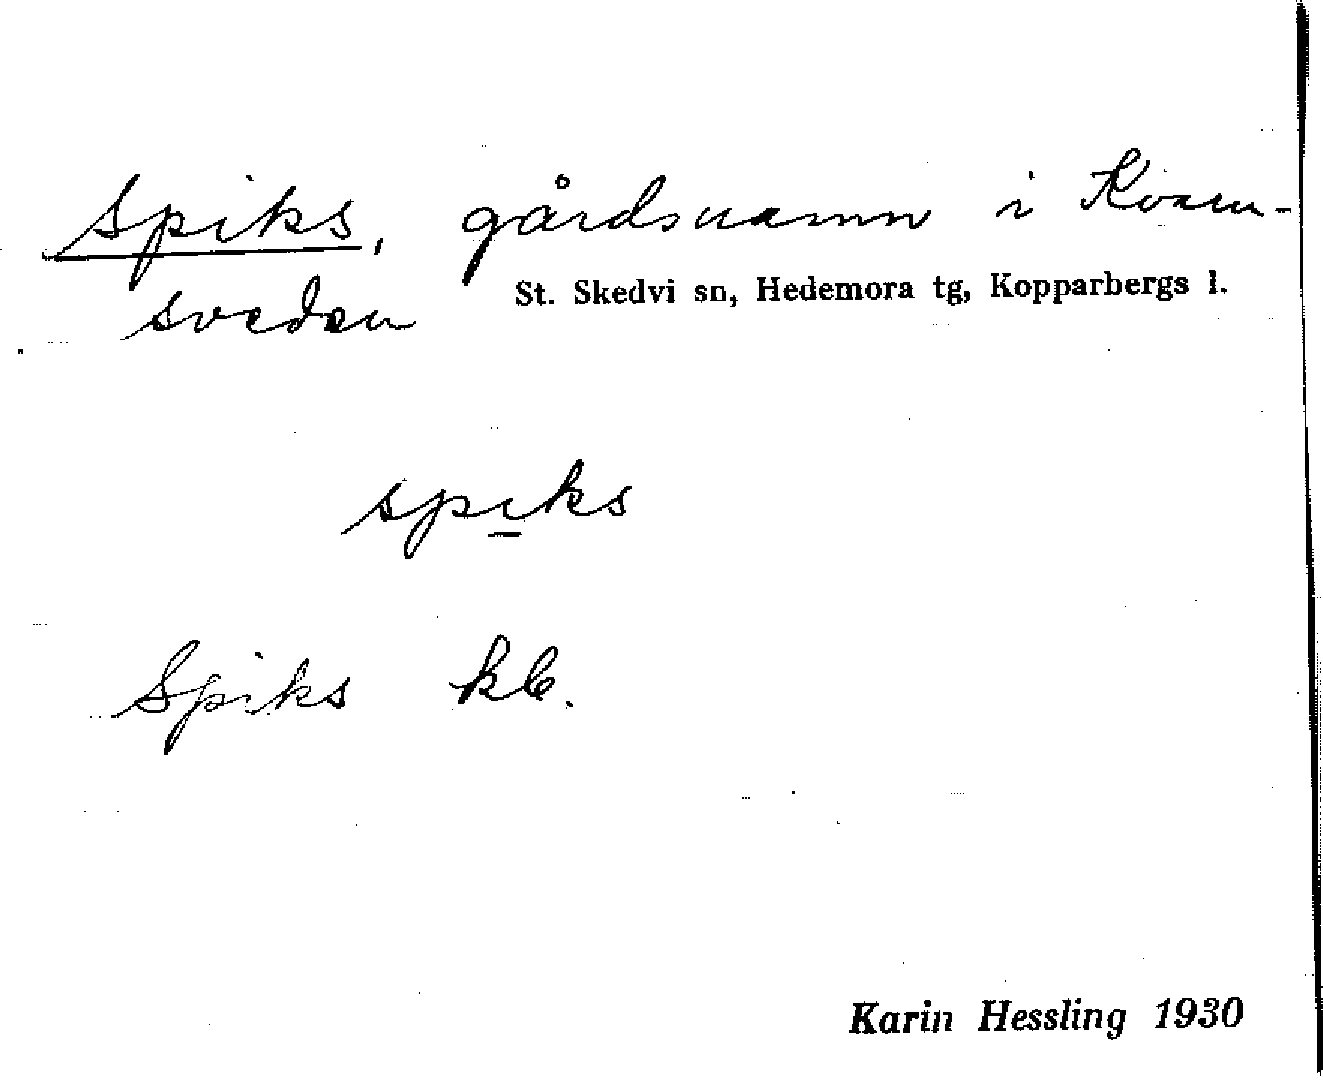 Spiks, gårdsnamn i Kvarn-
sveden St. Skedvi sn, Hedemora tg, Kopparbergs l.
spiks
Spiks kb.
Karin Hessling 1930